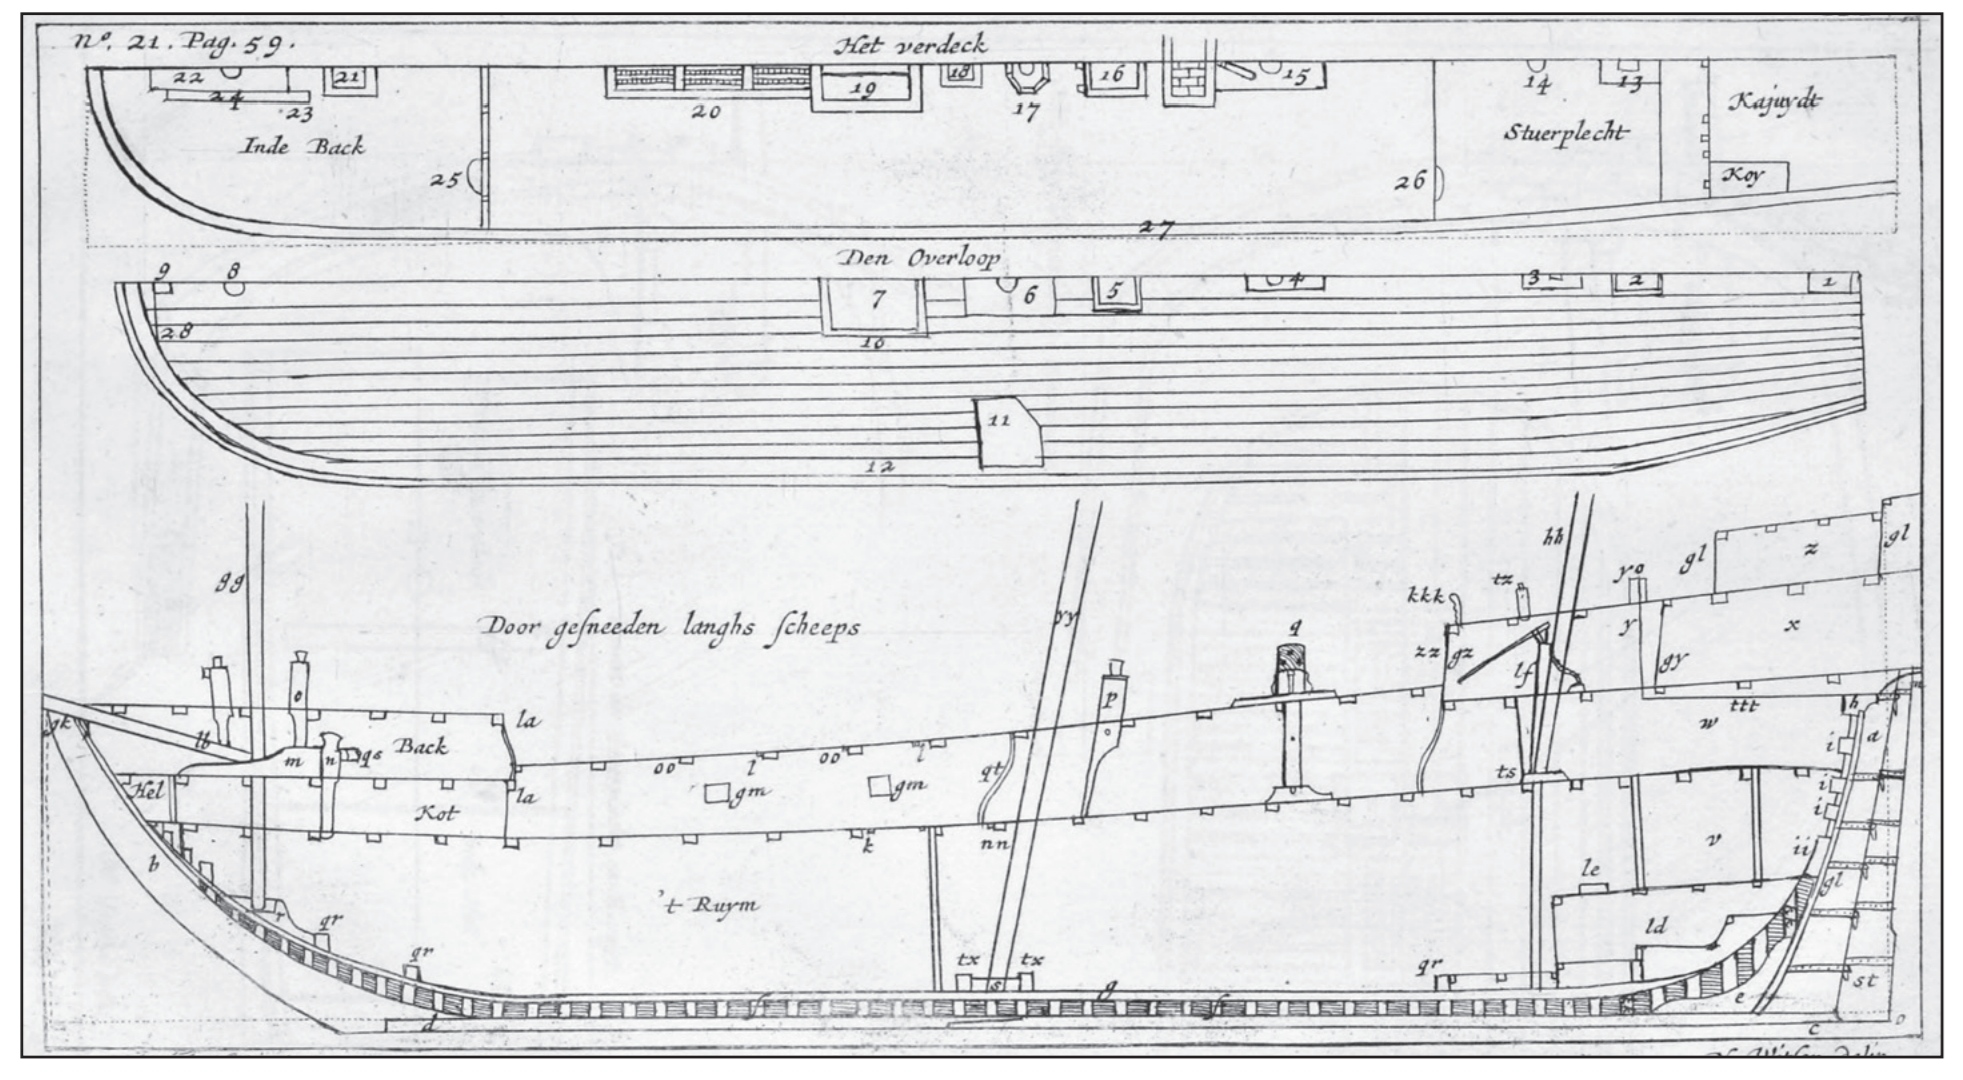 nº. 21. Pag. 59.
Het verdeck
22 21 18 16 15 14 13
24 23 20 19 17
Kajuydt
Inde Back
Stuerplecht
25 26 Koy
27
Den Overloop
9 8 7 6 5 4 3 2 1
28 10
11
12
gg yy hh gl z gl
kkk tz yo
Door gesneeden langhs scheeps
q zz gz lf y gy x
o p
gk lb la ttt h
m n qs Back w a
oo l oo l qt i
Hel la gm gm ts i
Kot i
b k nn v ii
le gl
't Ruym
r qr ld
qr tx tx qr st
s g e
d f f c